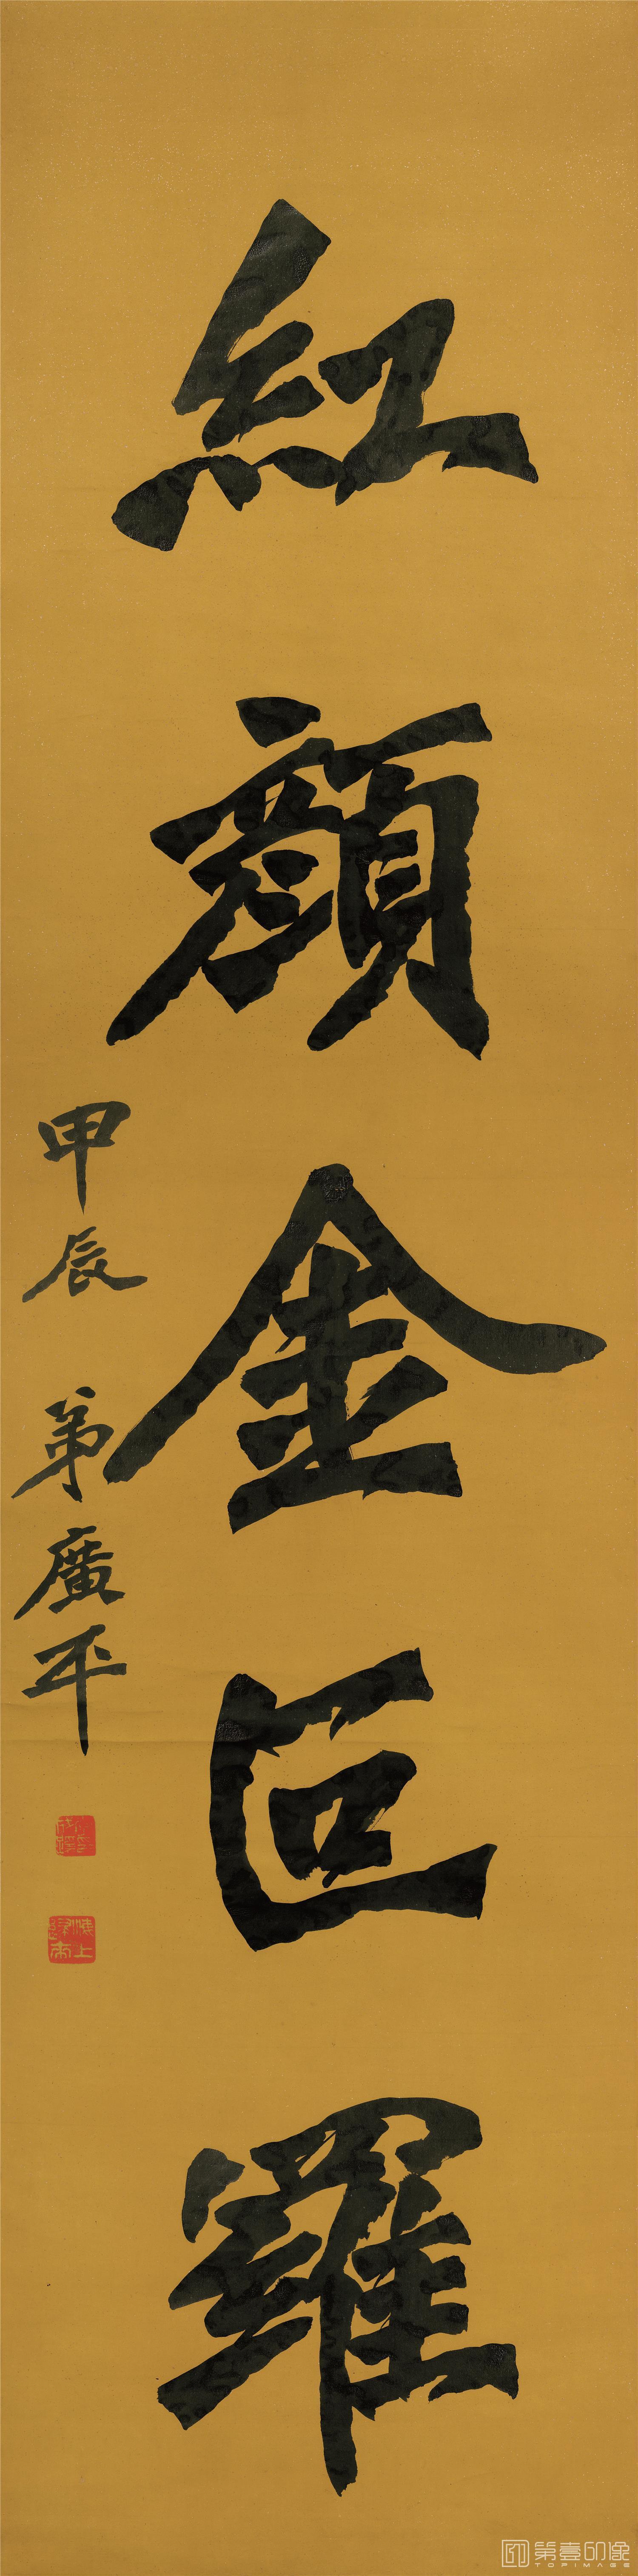 紅顏金叵羅
甲辰 弟廣平
第壹印像
TOPIMAGE